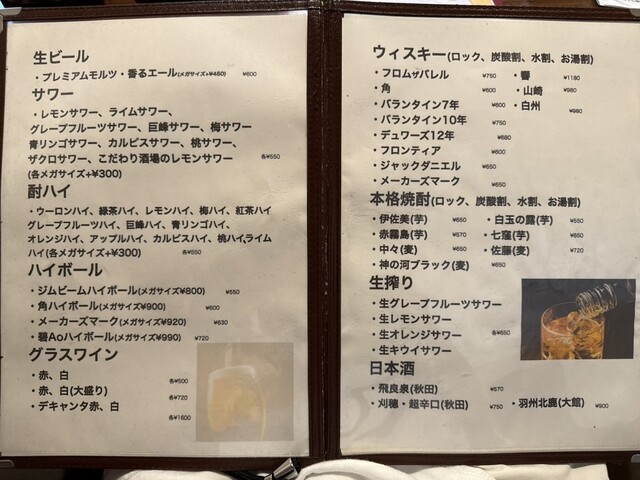 生ビール
・プレミアムモルツ・香るエール(メガサイズ+¥460) ¥600
サワー
・レモンサワー、ライムサワー、
グレープフルーツサワー、巨峰サワー、梅サワー
青リンゴサワー、カルピスサワー、桃サワー、
ザクロサワー、こだわり酒場のレモンサワー 各¥550
(各メガサイズ+¥300)
酎ハイ
・ウーロンハイ、緑茶ハイ、レモンハイ、梅ハイ、紅茶ハイ
グレープフルーツハイ、巨峰ハイ、青リンゴハイ、
オレンジハイ、アップルハイ、カルピスハイ、桃ハイ,ライム
ハイ(各メガサイズ+¥300) 各¥550
ハイボール
・ジムビームハイボール(メガサイズ¥800) ¥550
・角ハイボール(メガサイズ¥900) ¥600
・メーカーズマーク(メガサイズ¥920) ¥630
・碧Aoハイボール(メガサイズ¥990) ¥720
グラスワイン
・赤、白 各¥500
・赤、白(大盛り) 各¥720
・デキャンタ赤、白 各¥1600
ウィスキー(ロック、炭酸割、水割、お湯割)
・フロムザバレル ¥750 ・響 ¥1180
・角 ¥600 ・山崎 ¥980
・バランタイン7年 ¥600 ・白州 ¥980
・バランタイン10年 ¥750
・デュワーズ12年 ¥680
・フロンティア ¥600
・ジャックダニエル ¥650
・メーカーズマーク ¥650
本格焼酎(ロック、炭酸割、水割、お湯割)
・伊佐美(芋) ¥650 ・白玉の露(芋) ¥550
・赤霧島(芋) ¥570 ・七窪(芋) ¥650
・中々(麦) ¥650 ・佐藤(麦) ¥720
・神の河ブラック(麦) ¥650
生搾り
・生グレープフルーツサワー
・生レモンサワー
・生オレンジサワー 各¥650
・生キウイサワー
日本酒
・飛良泉(秋田) ¥570
・刈穂・超辛口(秋田) ¥750 ・羽州北鹿(大館) ¥900